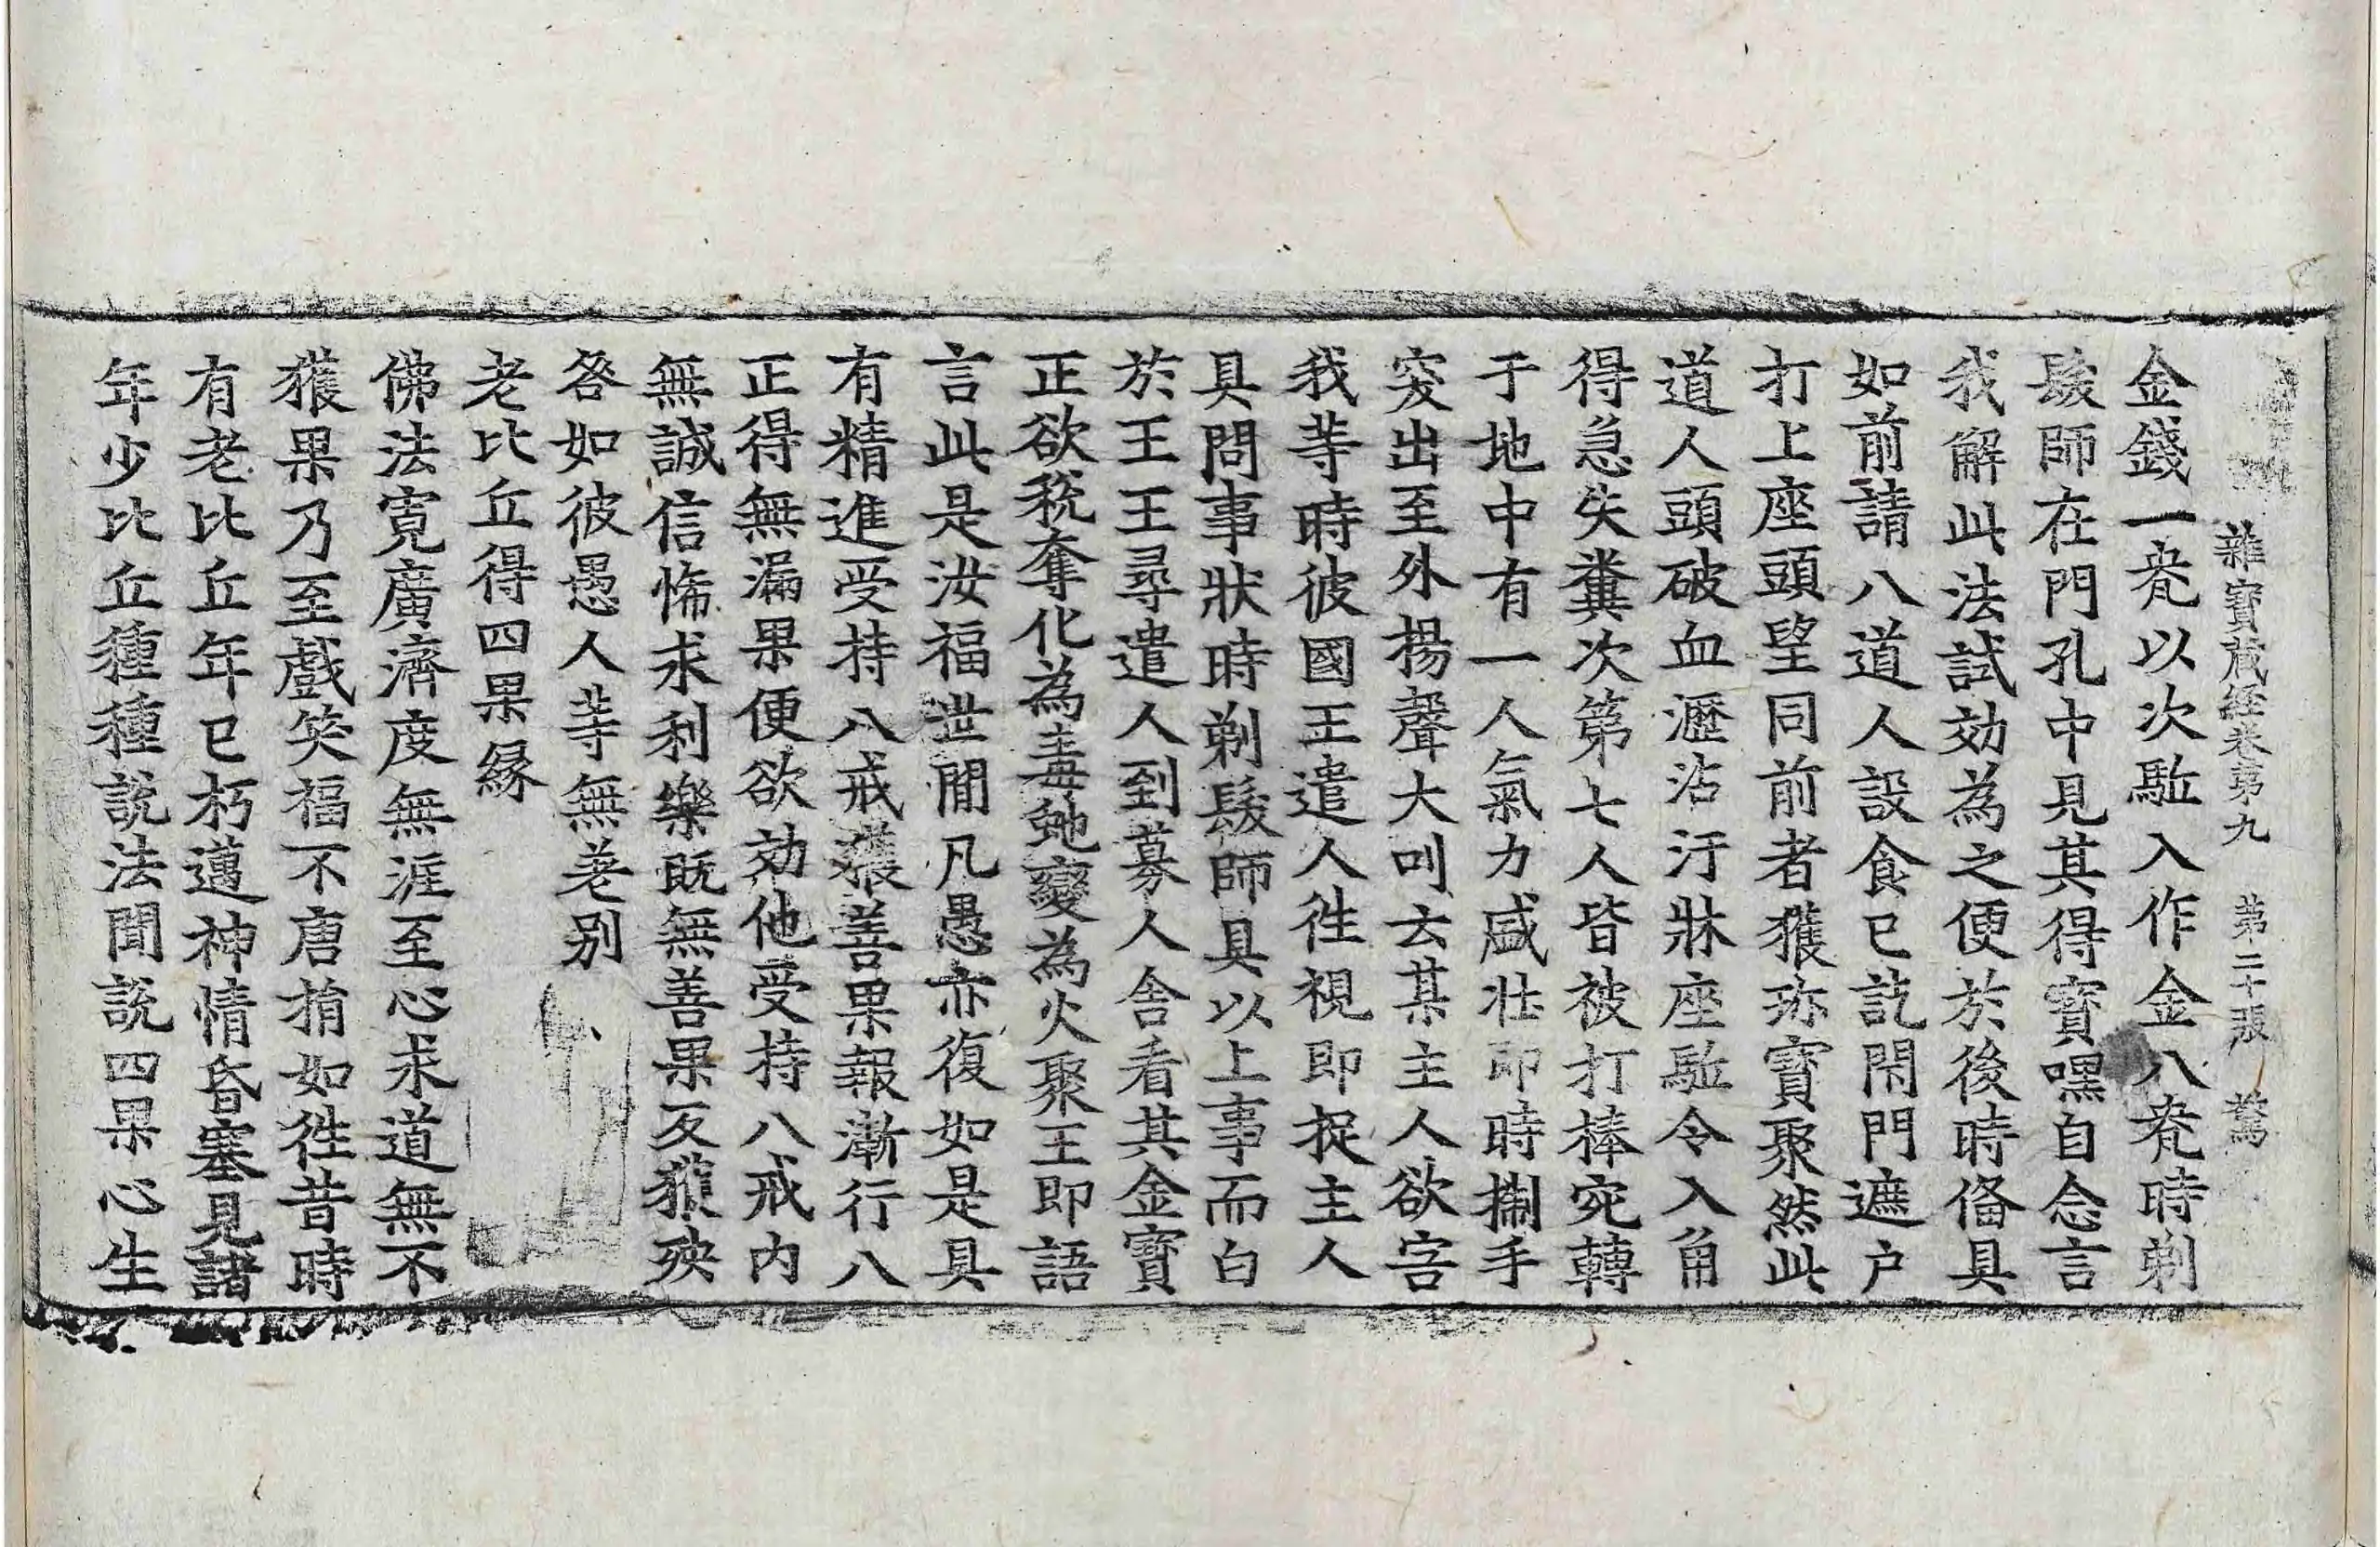 雜寶蔵經卷第九 第二十張 驚
金錢一瓫以次駈入作金八瓫時剃
髮師在門孔中見其得寳嘿自念言
我解此法試効為之便於後時俻具
如前請八道人設食已訖閇門遮户
打上座頭望同前者獲珎寳聚然此
道人頭破血瀝沾汙牀座駈令入角
得急失糞次第七人皆被打棒宛轉
于地中有一人氣力盛壮即時摑手
突出至外揚聲大叫云某主人欲害
我等時彼國王遣人徃視即捉主人
具問事狀時剃髮師具以上事而白
於王王尋遣人到募人舎看其金寳
正欲税奪化為毒虵變為火聚王即語
言此是汝福世間凡愚亦復如是見
有精進受持八戒獲善果報漸行八
正得無漏果便欲効他受持八戒内
無誠信悕求利樂既無善果反獲殃
咎如彼愚人等無差别
老比丘得四果縁
佛法寛廣濟度無涯至心求道無不
獲果乃至戲笑福不唐捐如徃昔時
有老比丘年已朽邁神情昏塞見諸
年少比丘種種説法聞説四果心生